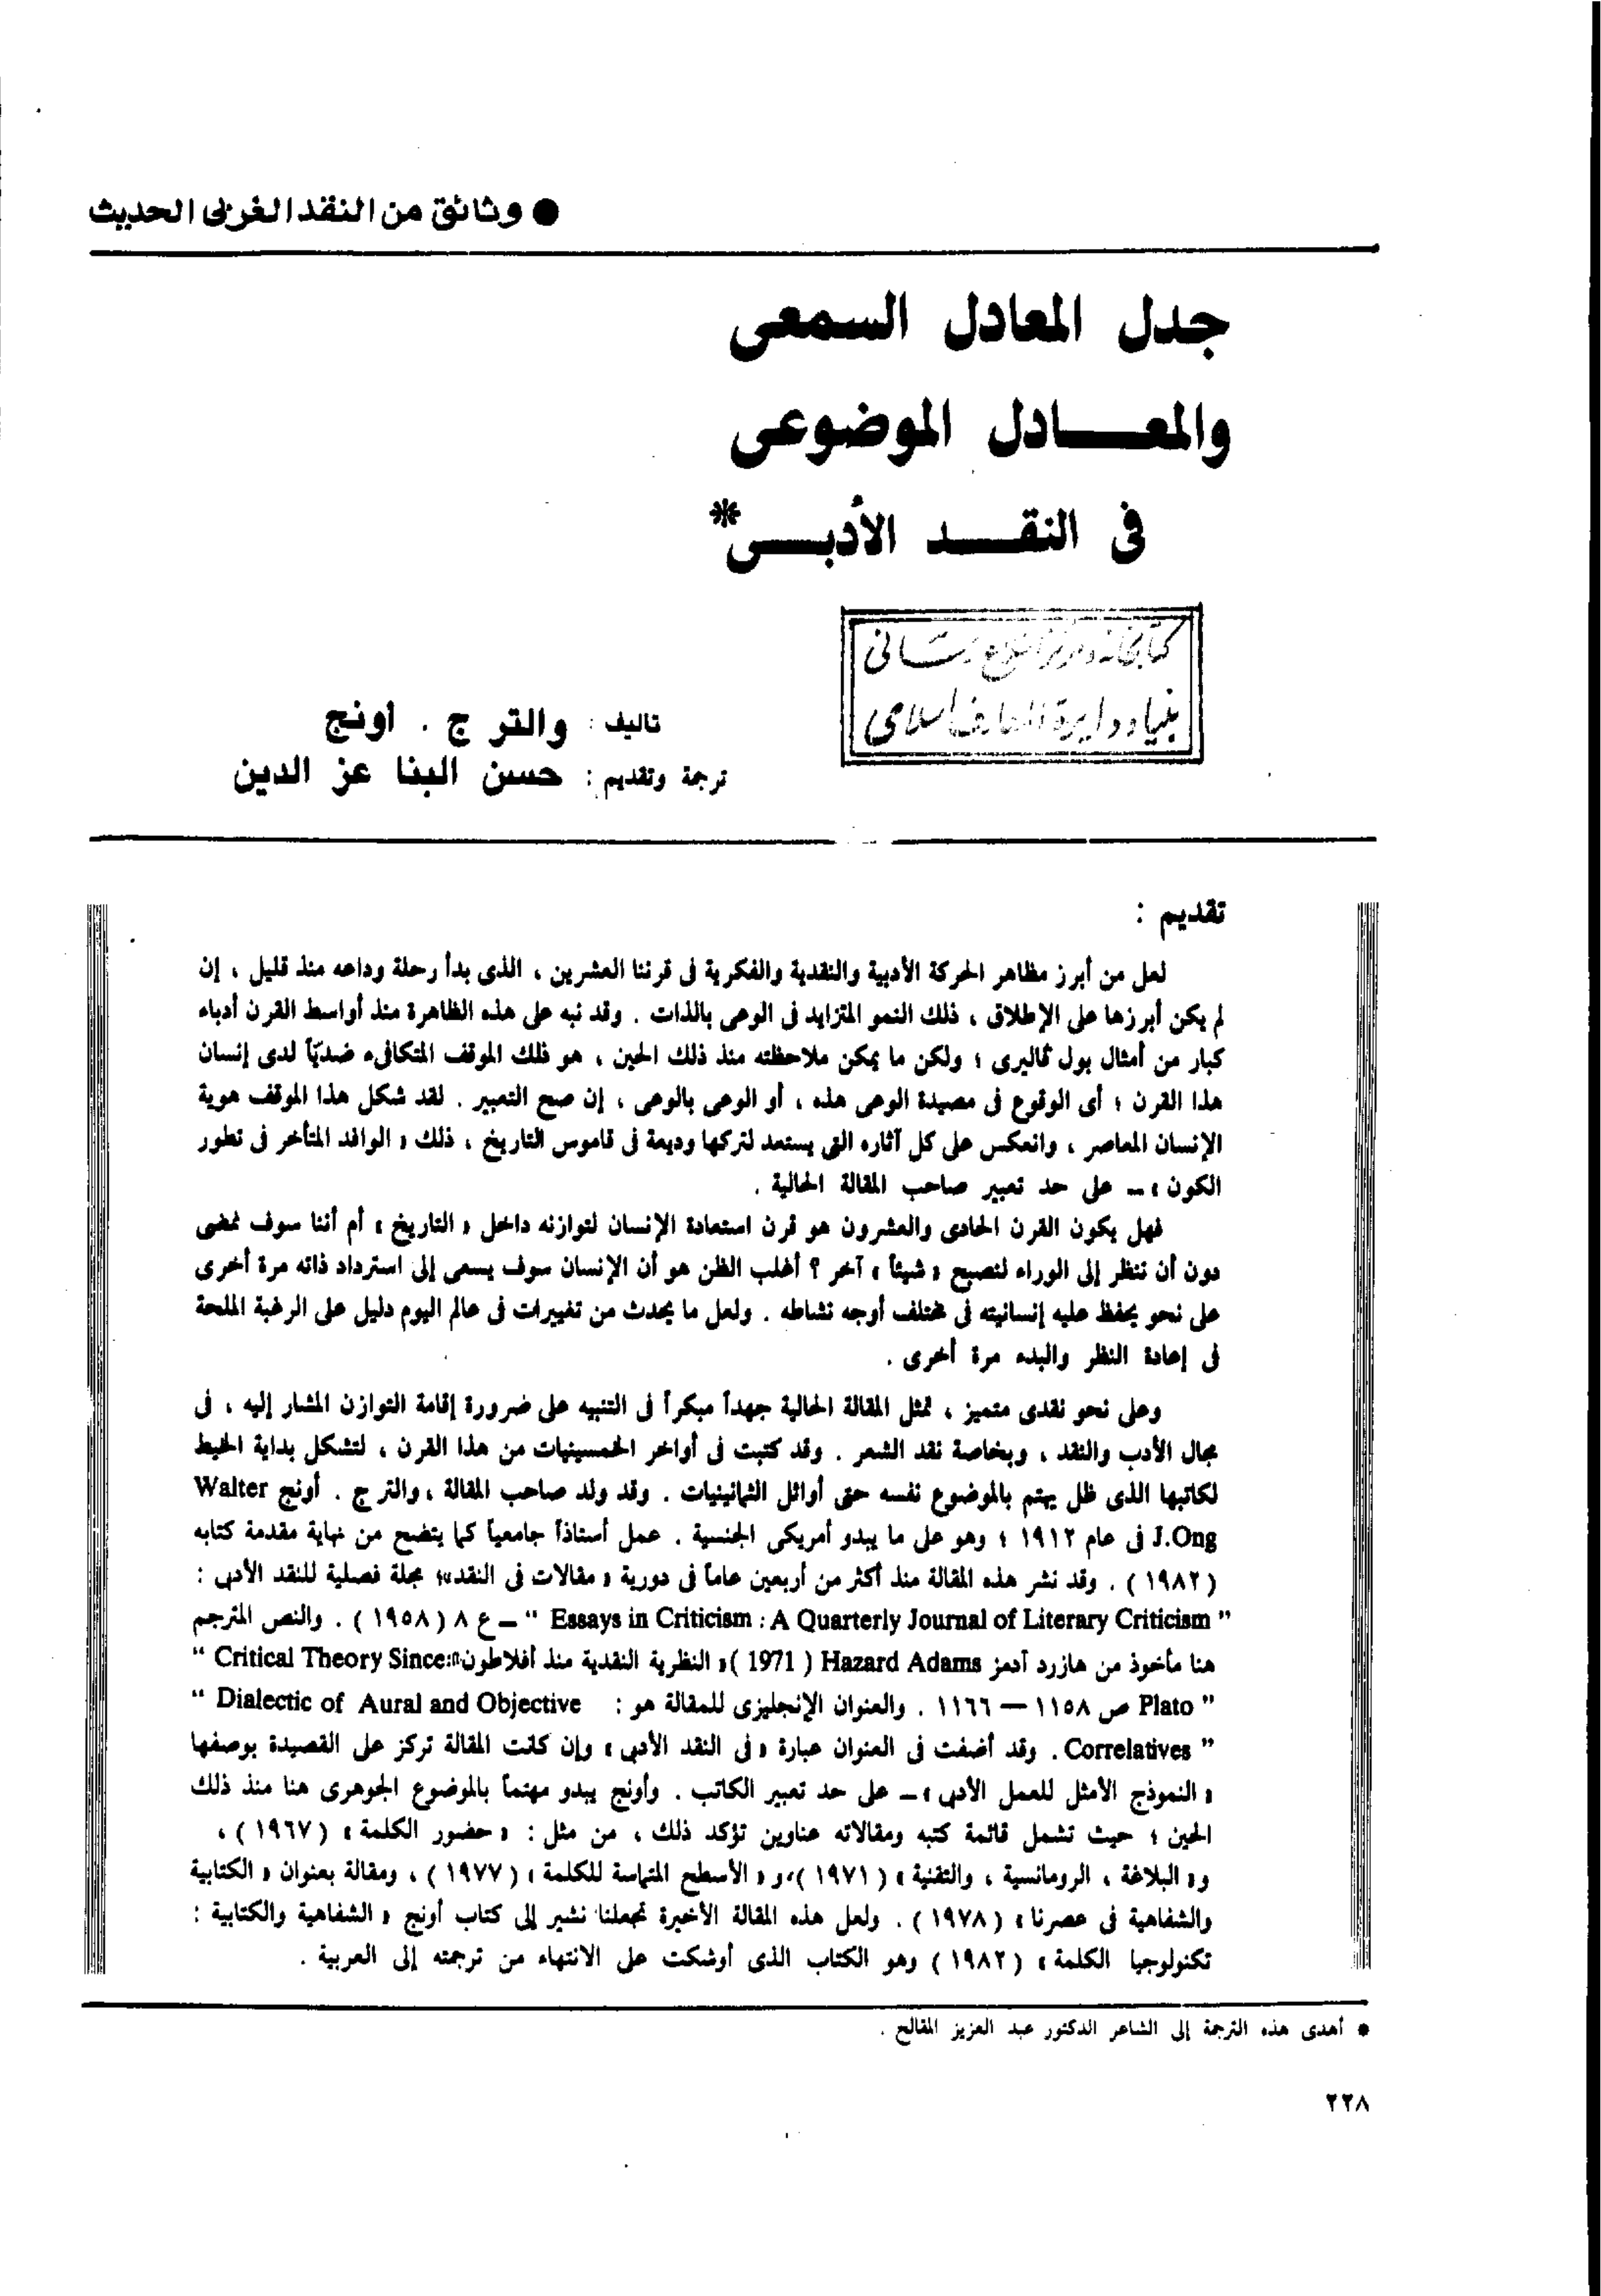 ● وثائق من النقد الغربى الحديث
جدل المعادل السمعى
والمعـــادل الموضوعى
فى النقـــد الأدبـــى*
تأليف : والتر ج . أونج
ترجمة وتقديم : حسن البنا عز الدين
تقديم :
لعل من أبرز مظاهر الحركة الأدبية والنقدية والفكرية فى قرننا العشرين ، الذى بدأ رحلة وداعه منذ قليل ، إن
لم يكن أبرزها على الإطلاق ، ذلك النمو المتزايد فى الوعى بالذات . وقد نبه على هذه الظاهرة منذ أواسط القرن أدباء
كبار من أمثال بول ڤاليرى ؛ ولكن ما يمكن ملاحظته منذ ذلك الحين ، هو ذلك الموقف المتكافىء ضديّاً لدى إنسان
هذا القرن ؛ أى الوقوع فى مصيدة الوعى هذه ، أو الوعى بالوعى ، إن صح التعبير . لقد شكل هذا الموقف هوية
الإنسان المعاصر ، وانعكس على كل آثاره التى يستعد لتركها وديعة فى قاموس التاريخ ، ذلك « الوافد المتأخر فى تطور
الكون » – على حد تعبير صاحب المقالة الحالية .
فهل يكون القرن الحادى والعشرون هو قرن استعادة الإنسان لتوازنه داخل « التاريخ » أم أننا سوف نمضى
دون أن ننظر إلى الوراء لنصبح « شيئاً » آخر ؟ أغلب الظن هو أن الإنسان سوف يسعى إلى استرداد ذاته مرة أخرى
على نحو يحفظ عليه إنسانيته فى مختلف أوجه نشاطه . ولعل ما يحدث من تغييرات فى عالم اليوم دليل على الرغبة الملحة
فى إعادة النظر والبدء مرة أخرى .
وعلى نحو نقدى متميز ، تمثل المقالة الحالية جهداً مبكراً فى التنبيه على ضرورة إقامة التوازن المشار إليه ، فى
مجال الأدب والنقد ، وبخاصة نقد الشعر . وقد كتبت فى أواخر الخمسينيات من هذا القرن ، لتشكل بداية الخيط
لكاتبها الذى ظل يهتم بالموضوع نفسه حتى أوائل الثمانينيات . وقد ولد صاحب المقالة ، والتر ج . أونج Walter
J.Ong فى عام ١٩١٢ ؛ وهو على ما يبدو أمريكى الجنسية . عمل أستاذاً جامعياً كما يتضح من نهاية مقدمة كتابه
( ١٩٨٢ ) . وقد نشر هذه المقالة منذ أكثر من أربعين عاماً فى دورية « مقالات فى النقد»؛ مجلة فصلية للنقد الأدبى :
" Essays in Criticism : A Quarterly Journal of Literary Criticism " – ع ٨ ( ١٩٥٨ ) . والنص المترجم
هنا مأخوذ من هازرد آدمز Hazard Adams ( 1971 )« النظرية النقدية منذ أفلاطون»: Critical Theory Since "
Plato " ص ١١٥٨ — ١١٦٦ . والعنوان الإنجليزى للمقالة هو : " Dialectic of Aural and Objective
Correlatives " . وقد أضفت فى العنوان عبارة « فى النقد الأدبى » وإن كانت المقالة تركز على القصيدة بوصفها
« النموذج الأمثل للعمل الأدبى » – على حد تعبير الكاتب . وأونج يبدو مهتماً بالموضوع الجوهرى هنا منذ ذلك
الحين ؛ حيث تشمل قائمة كتبه ومقالاته عناوين تؤكد ذلك ، من مثل : « حضور الكلمة » ( ١٩٦٧ ) ،
و« البلاغة ، الرومانسية ، والتقنية » ( ١٩٧١ )،و « الأسطح المتماسة للكلمة » ( ١٩٧٧ ) ، ومقالة بعنوان « الكتابية
والشفاهية فى عصرنا » ( ١٩٧٨ ) . ولعل هذه المقالة الأخيرة تجعلنا نشير إلى كتاب أونج « الشفاهية والكتابية :
تكنولوجيا الكلمة » ( ١٩٨٢ ) وهو الكتاب الذى أوشكت على الانتهاء من ترجمته إلى العربية .
* أهدى هذه الترجمة إلى الشاعر الدكتور عبد العزيز المقالح .
٢٢٨